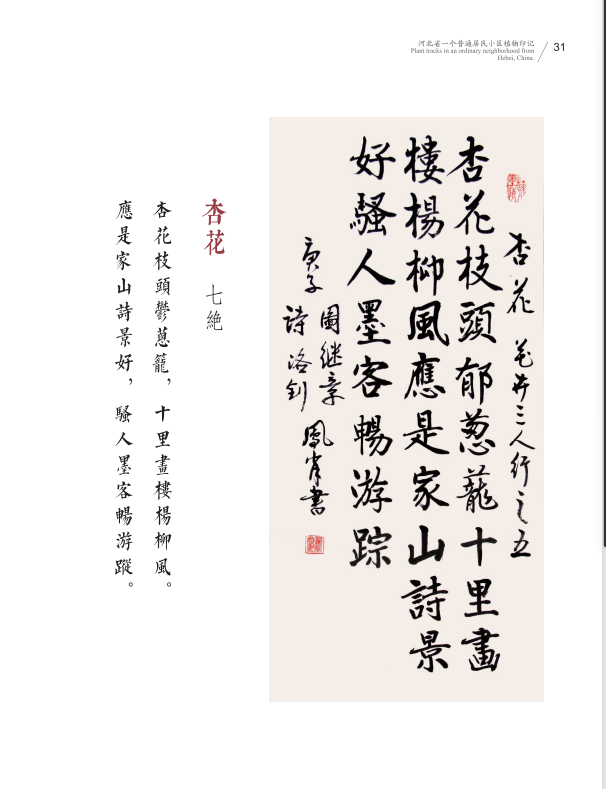 河北省一个普通居民小区植物印记
Plant tracks in an ordinary neighborhood from
Hebei, China.
31
杏花 花卉三人行之五
杏花枝頭郁葱蘢十里畫
樓楊柳風應是家山詩景
好騷人墨客暢游踪
庚子 圖继章
詩洛钊 鳳肖書
杏花 七絶
杏花枝頭鬱蔥籠，十里畫樓楊柳風。
應是家山詩景好，騷人墨客暢游蹤。